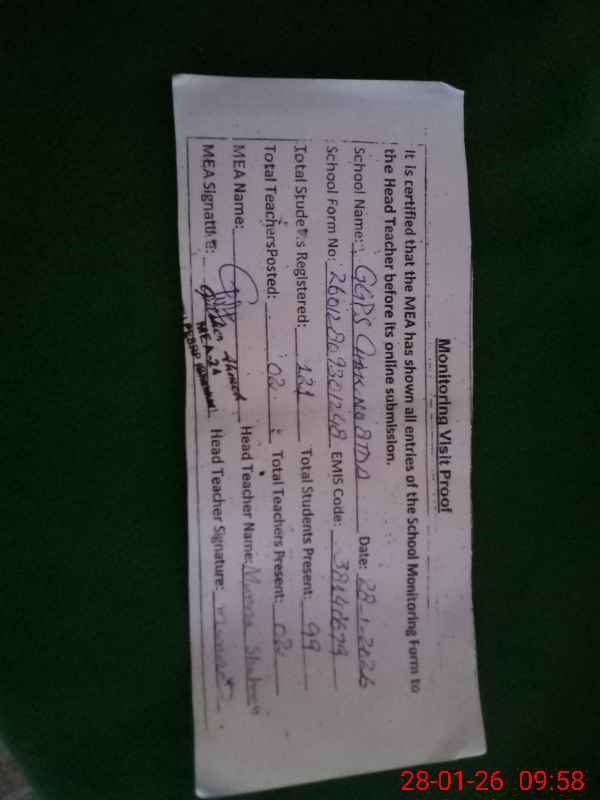 Monitoring Visit Proof
It is certified that the MEA has shown all entries of the School Monitoring Form to
the Head Teacher before its online submission.
School Name: GGPS CHAK NO 8TDA Date: 28-1-2026
School Form No: 26012809301248 EMIS Code:
Total Students Registered: 121 Total Students Present: 99
Total TeachersPosted: 02 Total Teachers Present: 02
MEA Name: Ahmed Head Teacher Name:
MEA-24
MEA Signature: Head Teacher Signature:
28-01-26 09:58